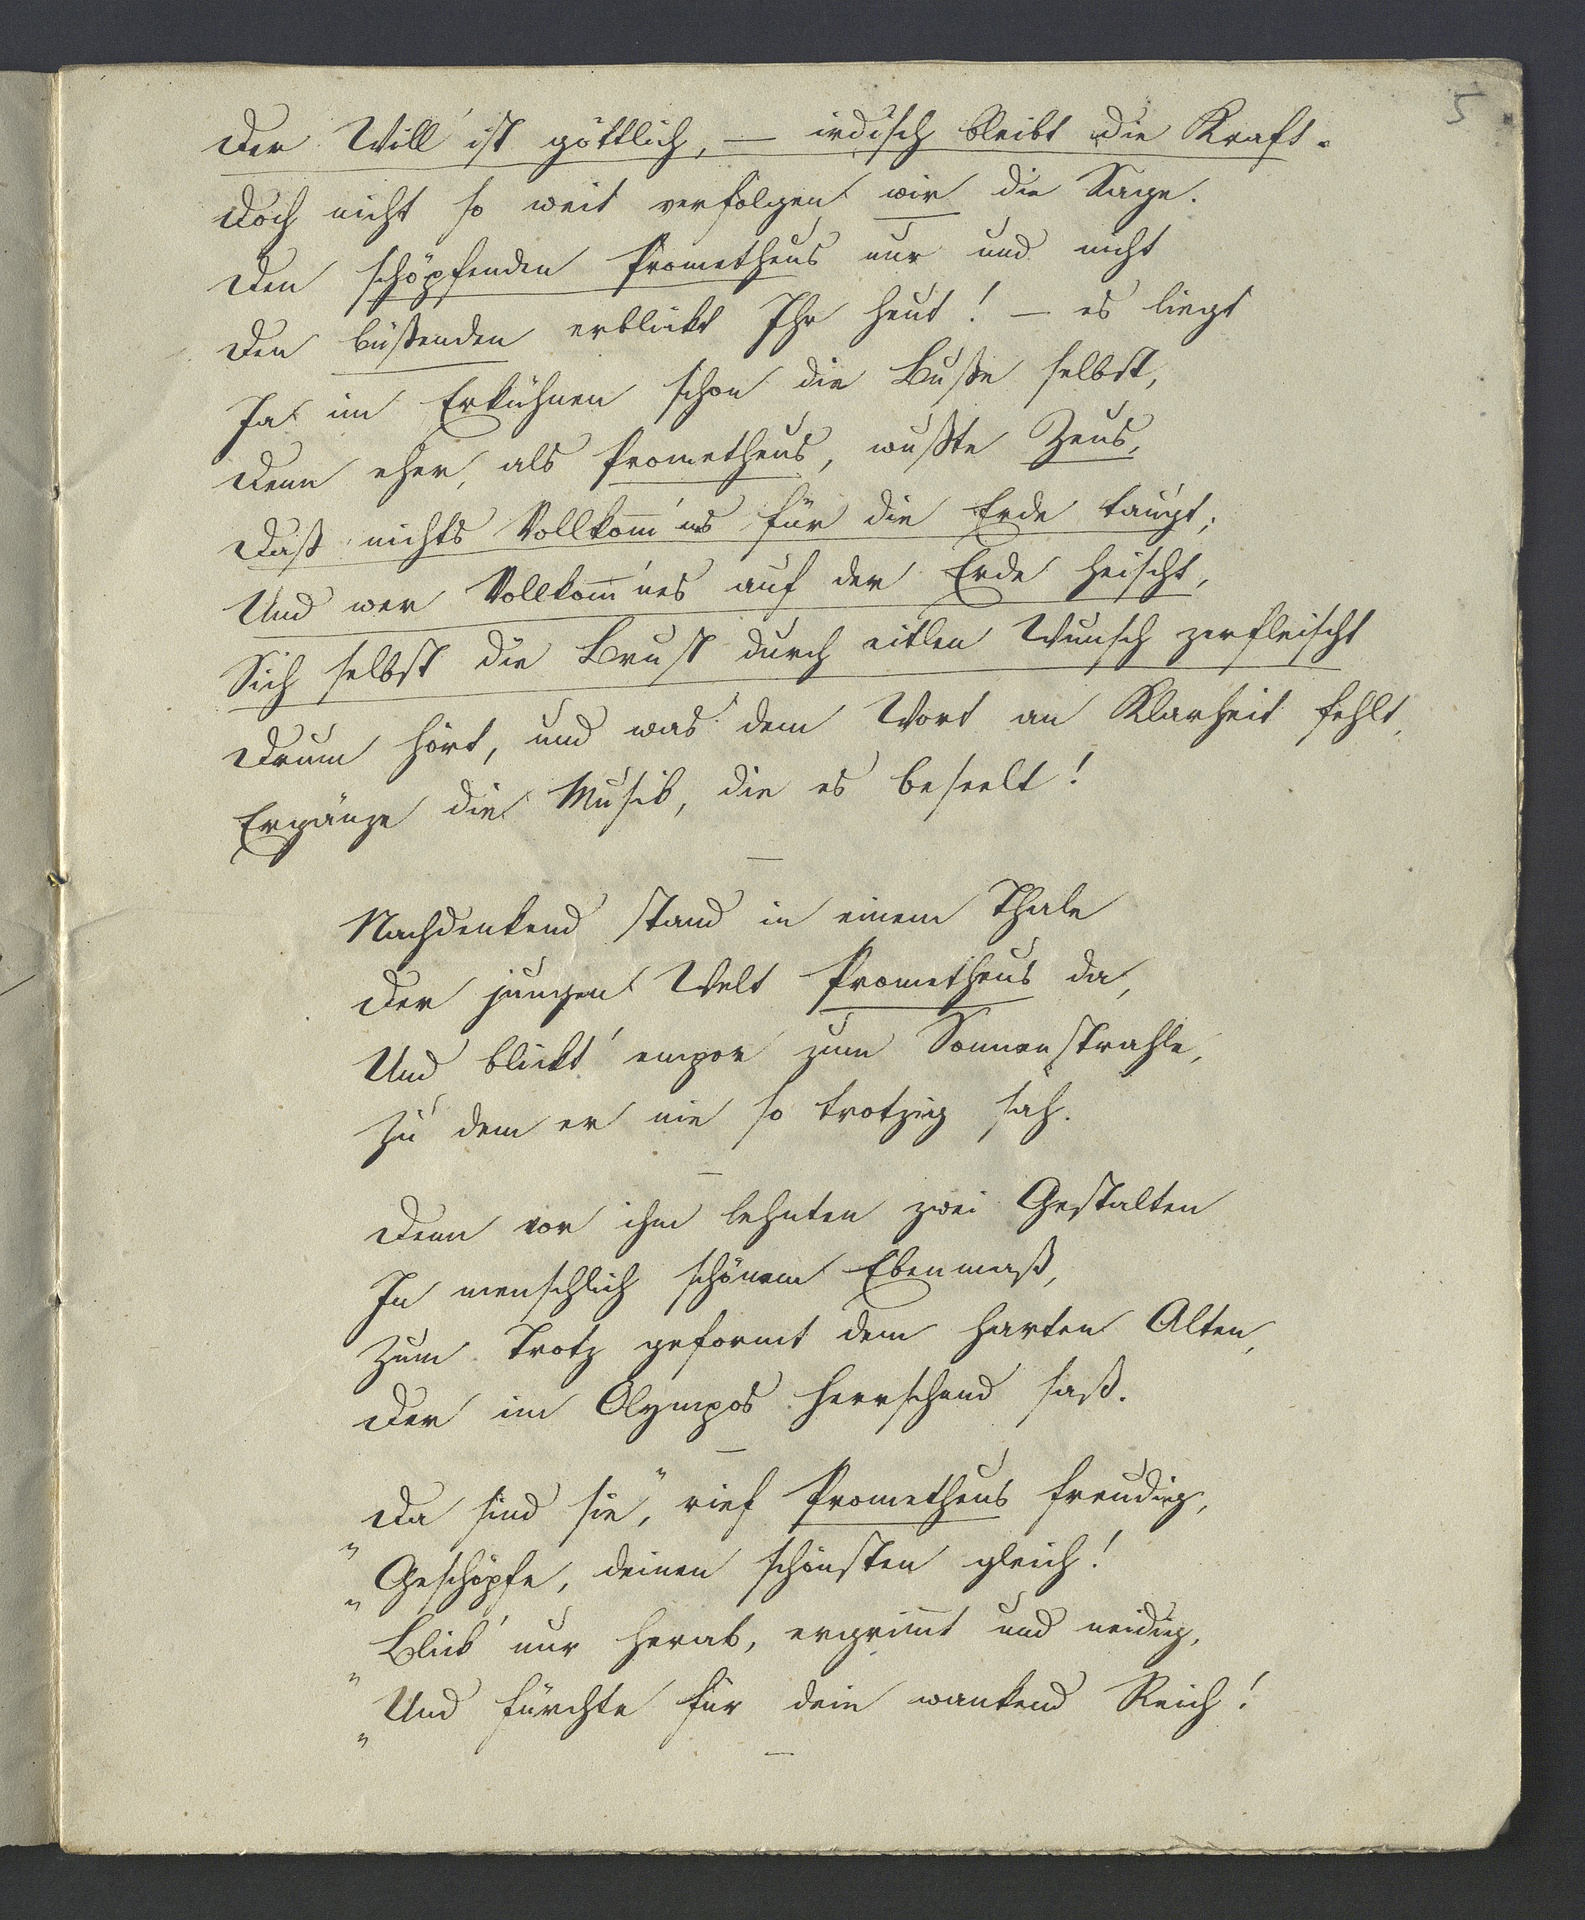 5
Der Will' ist göttlich, — irdisch bleibt die Kraft.
Doch nicht so weit verfolgen wir die Sage.
Den schöpfenden Prometheus nur und nicht
Den büßenden erblickt Ihr heut! — es liegt
Ja im Erkühnen schon die Buße selbst,
Denn eher, als Prometheus, wußte Zeus,
Daß nichts Vollkom̅'nes für die Erde taugt;
Und wer Vollkom̅'nes auf der Erde heischt,
Sich selbst die Brust durch eitlen Wunsch zerfleischt
Drum hört, und was dem Wort an Klarheit fehlt,
Ergänze die Musik, die es beseelt!
—
Nachdenkend stand in einem Thale
Der jungen Welt Prometheus da,
Und blickt' empor zum Sonnenstrahle,
Zu dem er nie so trotzig sah.
—
Denn vor ihm lehnten zwei Gestalten
In menschlich schönem Ebenmaß,
Zum Trotz geformt dem harten Alten,
Der im Olympos herrschend saß.
—
„Da sind sie," rief Prometheus freudig,
„Geschöpfe, deinen schönsten gleich!
„Blick' nur herab, ergrim̅t und neidig,
„Und fürchte für dein wankend Reich!
—